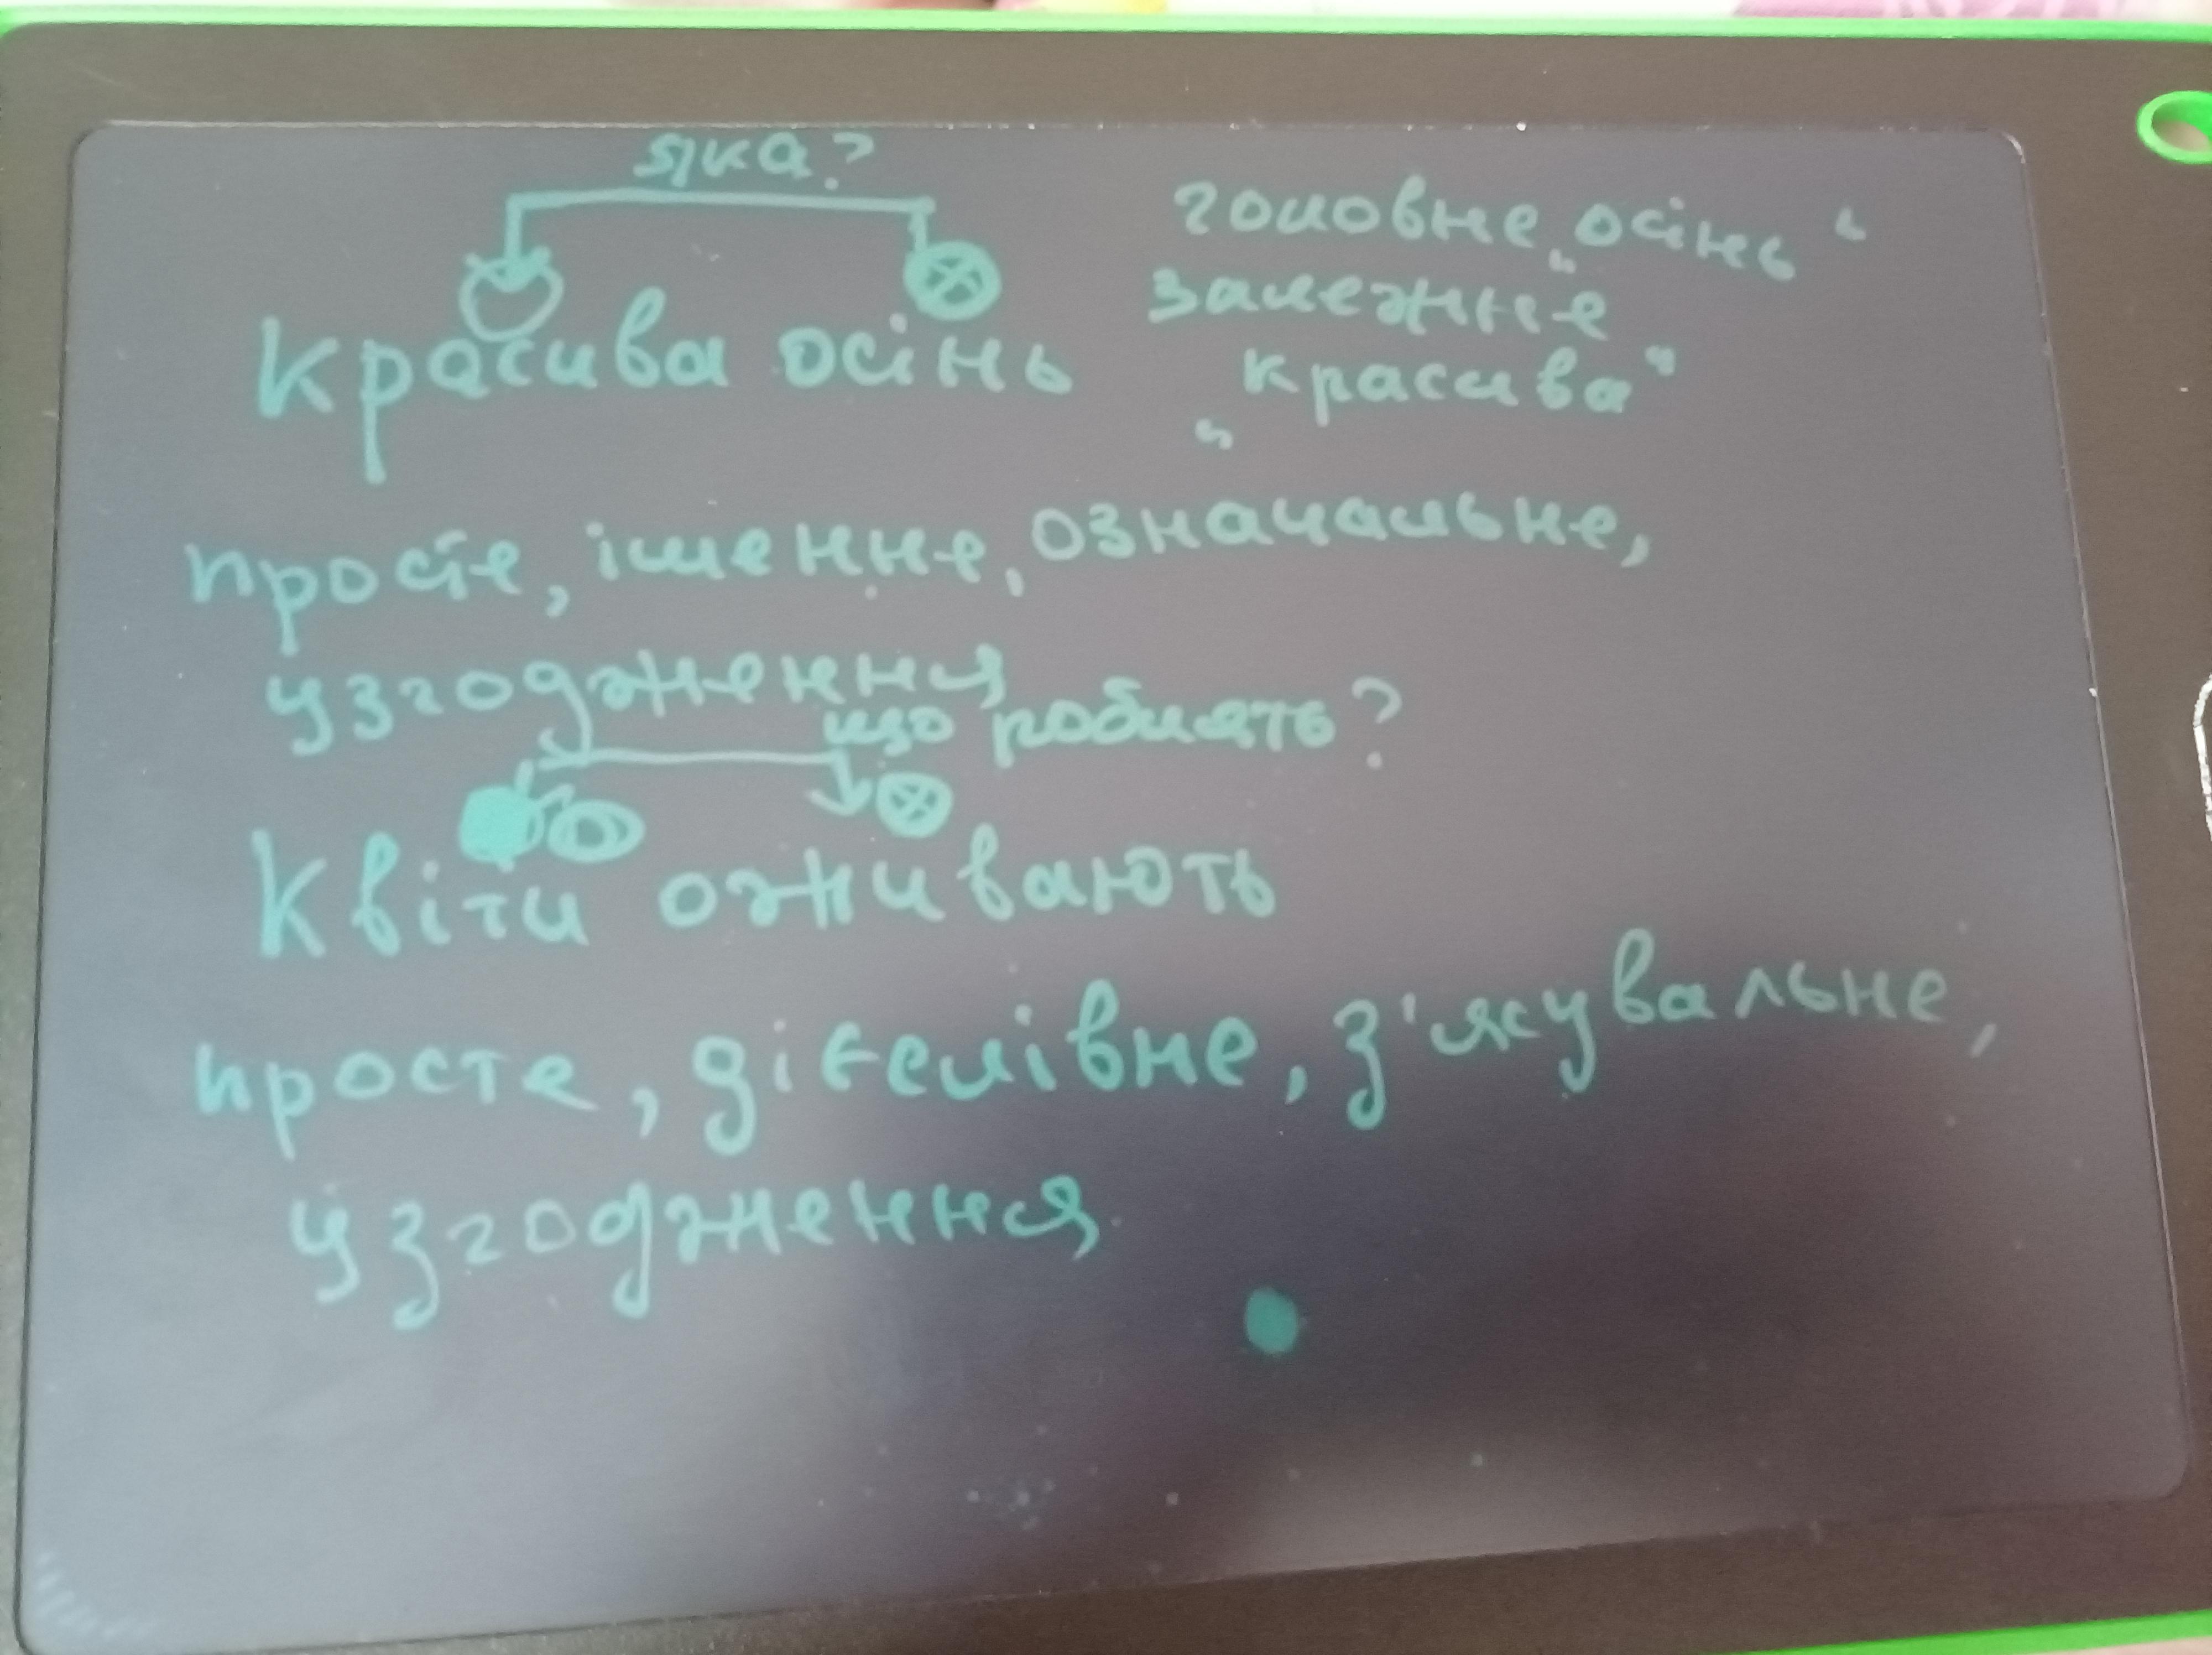 яка?
красива осінь
головне „осінь“
залежне
„красива“
просте, іменне, означальне,
узгодження
що роблять?
Квіти оживають
просте, дієслівне, з'ясувальне,
узгодження